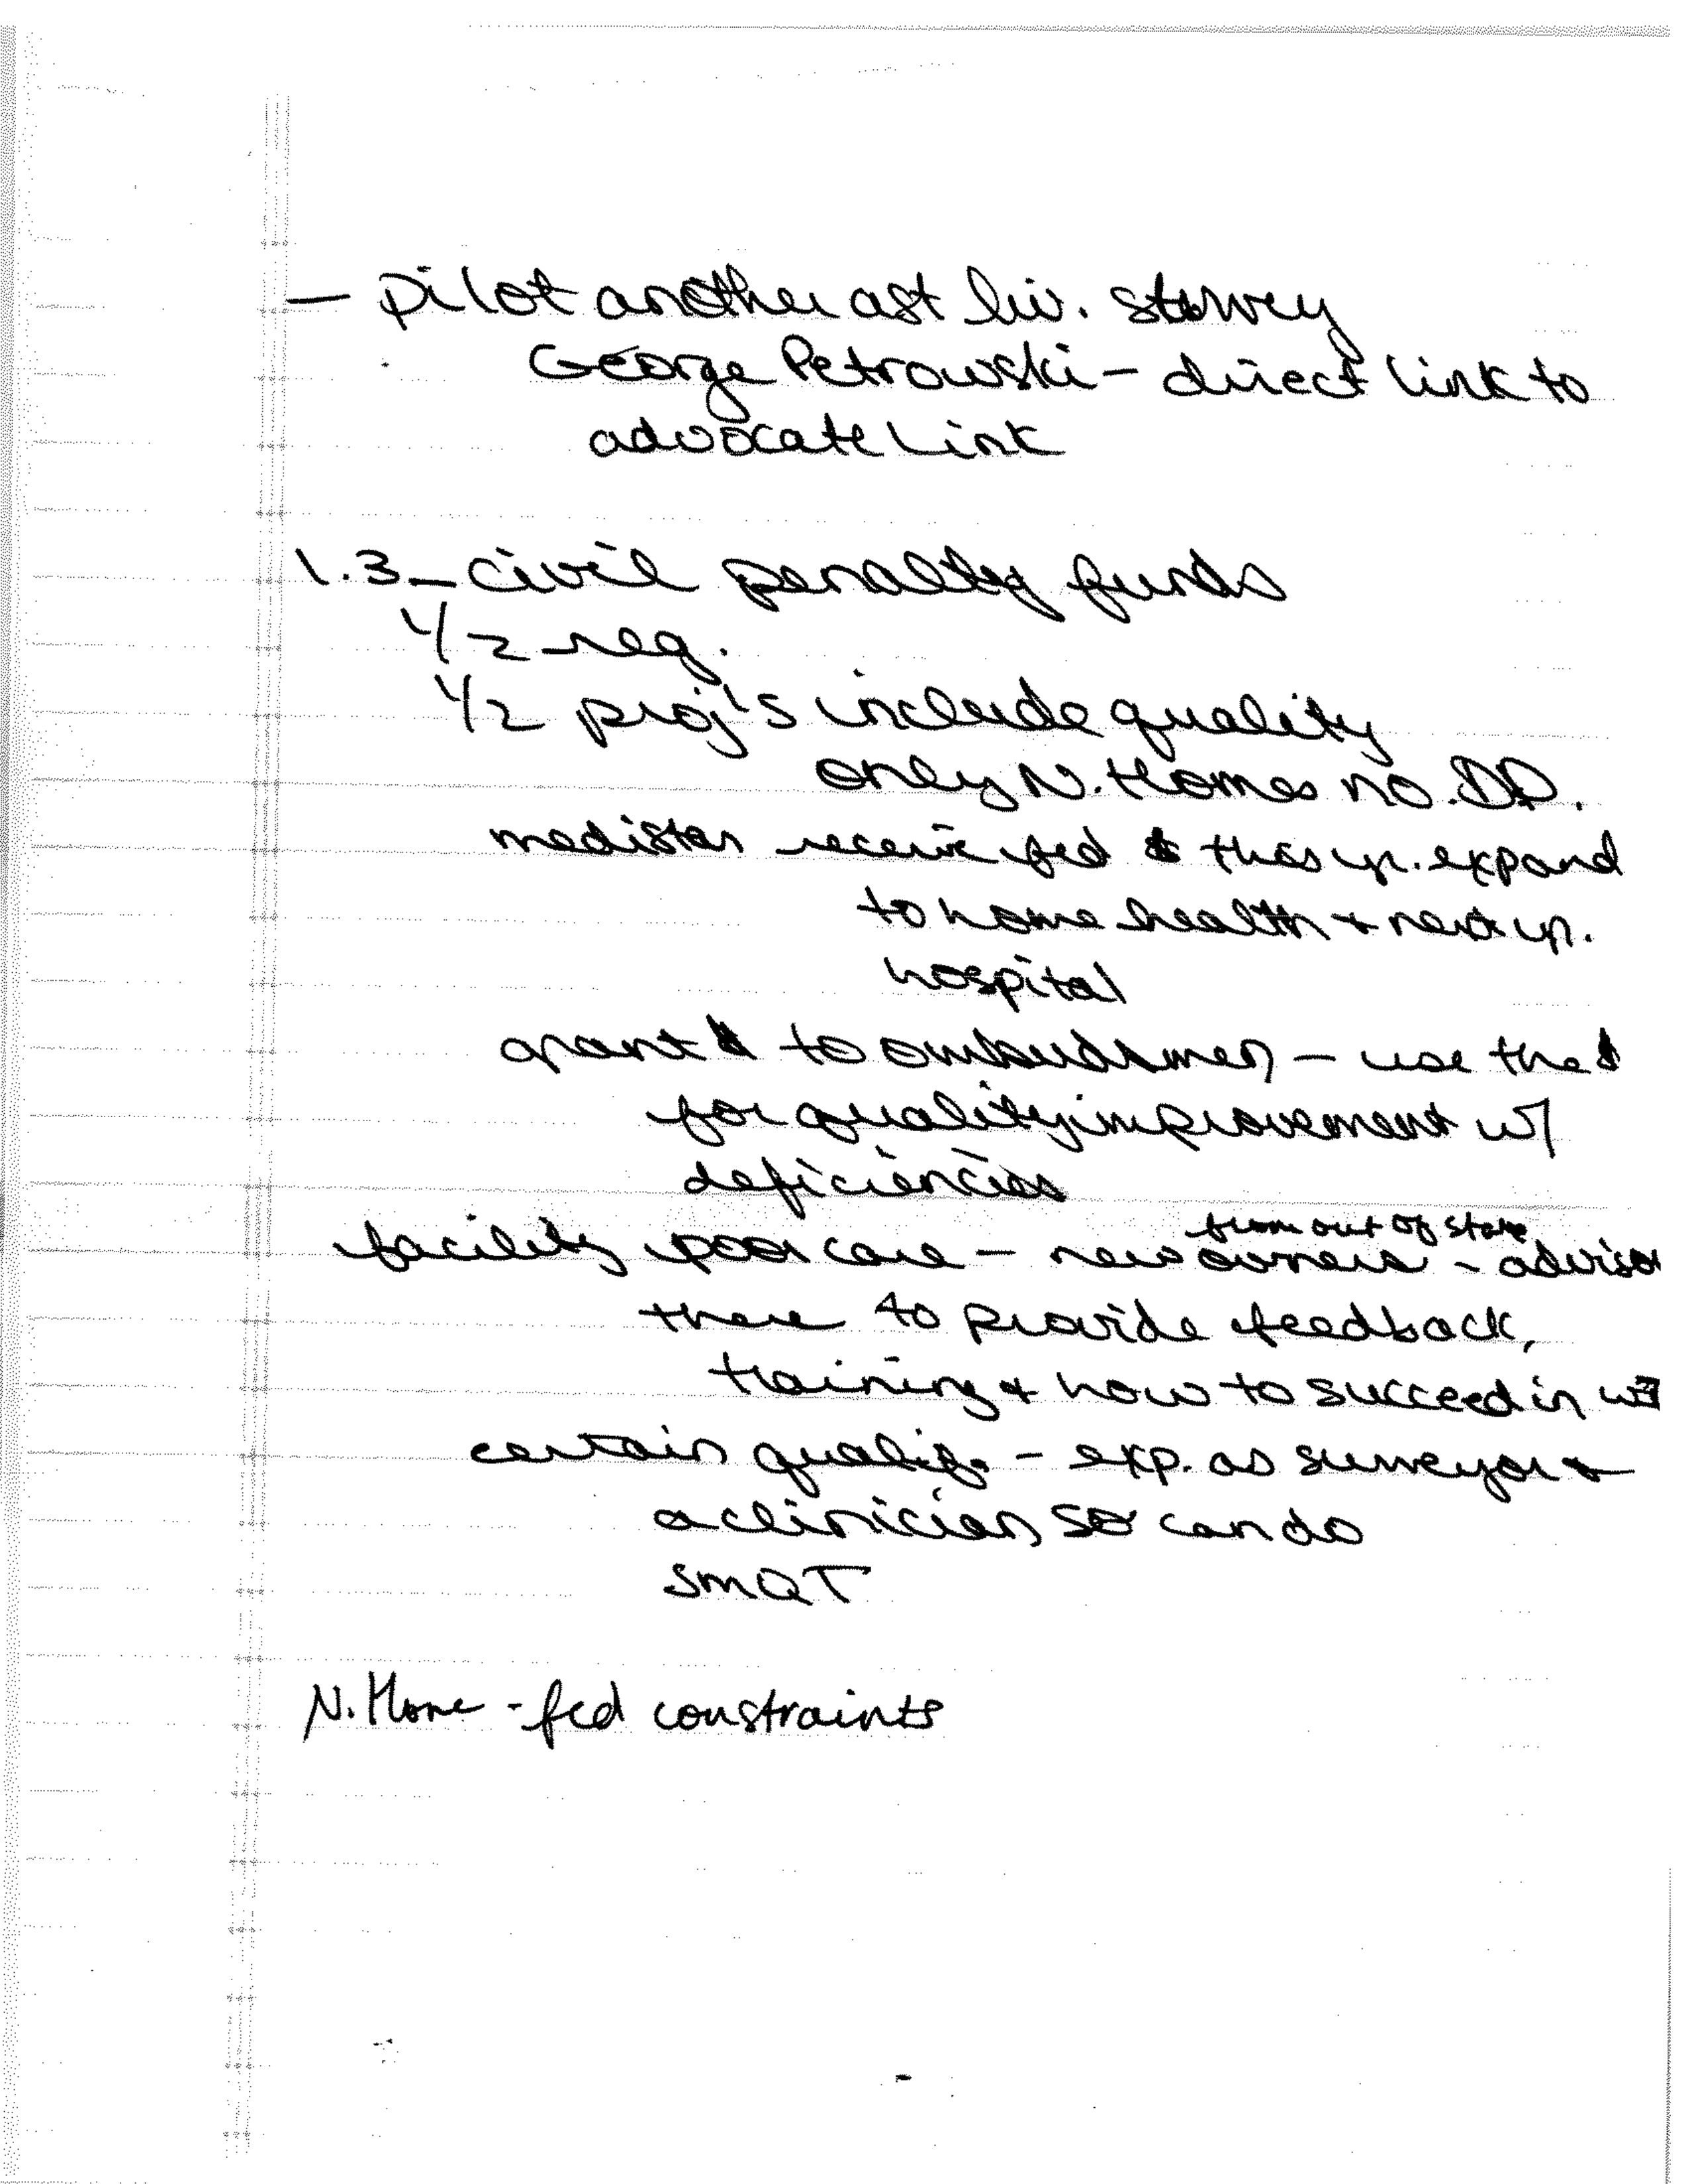 — pilot another ast liv. survey
George Petrowski - direct link to
advocate link
1.3 - civil penalty funds
1/2 reg.
1/2 proj's include quality
only N. Homes no. DD.
medistar receive fed $ this yr. expand
to home health + next yr.
hospital
grant $ to ombudsmen - use the $
for quality improvement w/
deficiencies
from out of state
facility poor care - new owners - advisor
there to provide feedback,
training + how to succeed in WI
certain qualif. - exp. as surveyor +
a clinician so can do
SMQT
N. Home - fed constraints